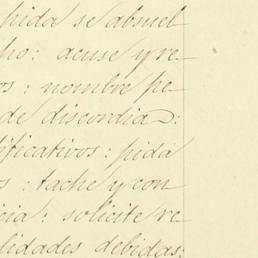 pida se absuel
ho: acuse y re-
os: nombre pe-
de discordia:
ificativos: pida
s: tache y con
cia: solicite re
lidades debidas: